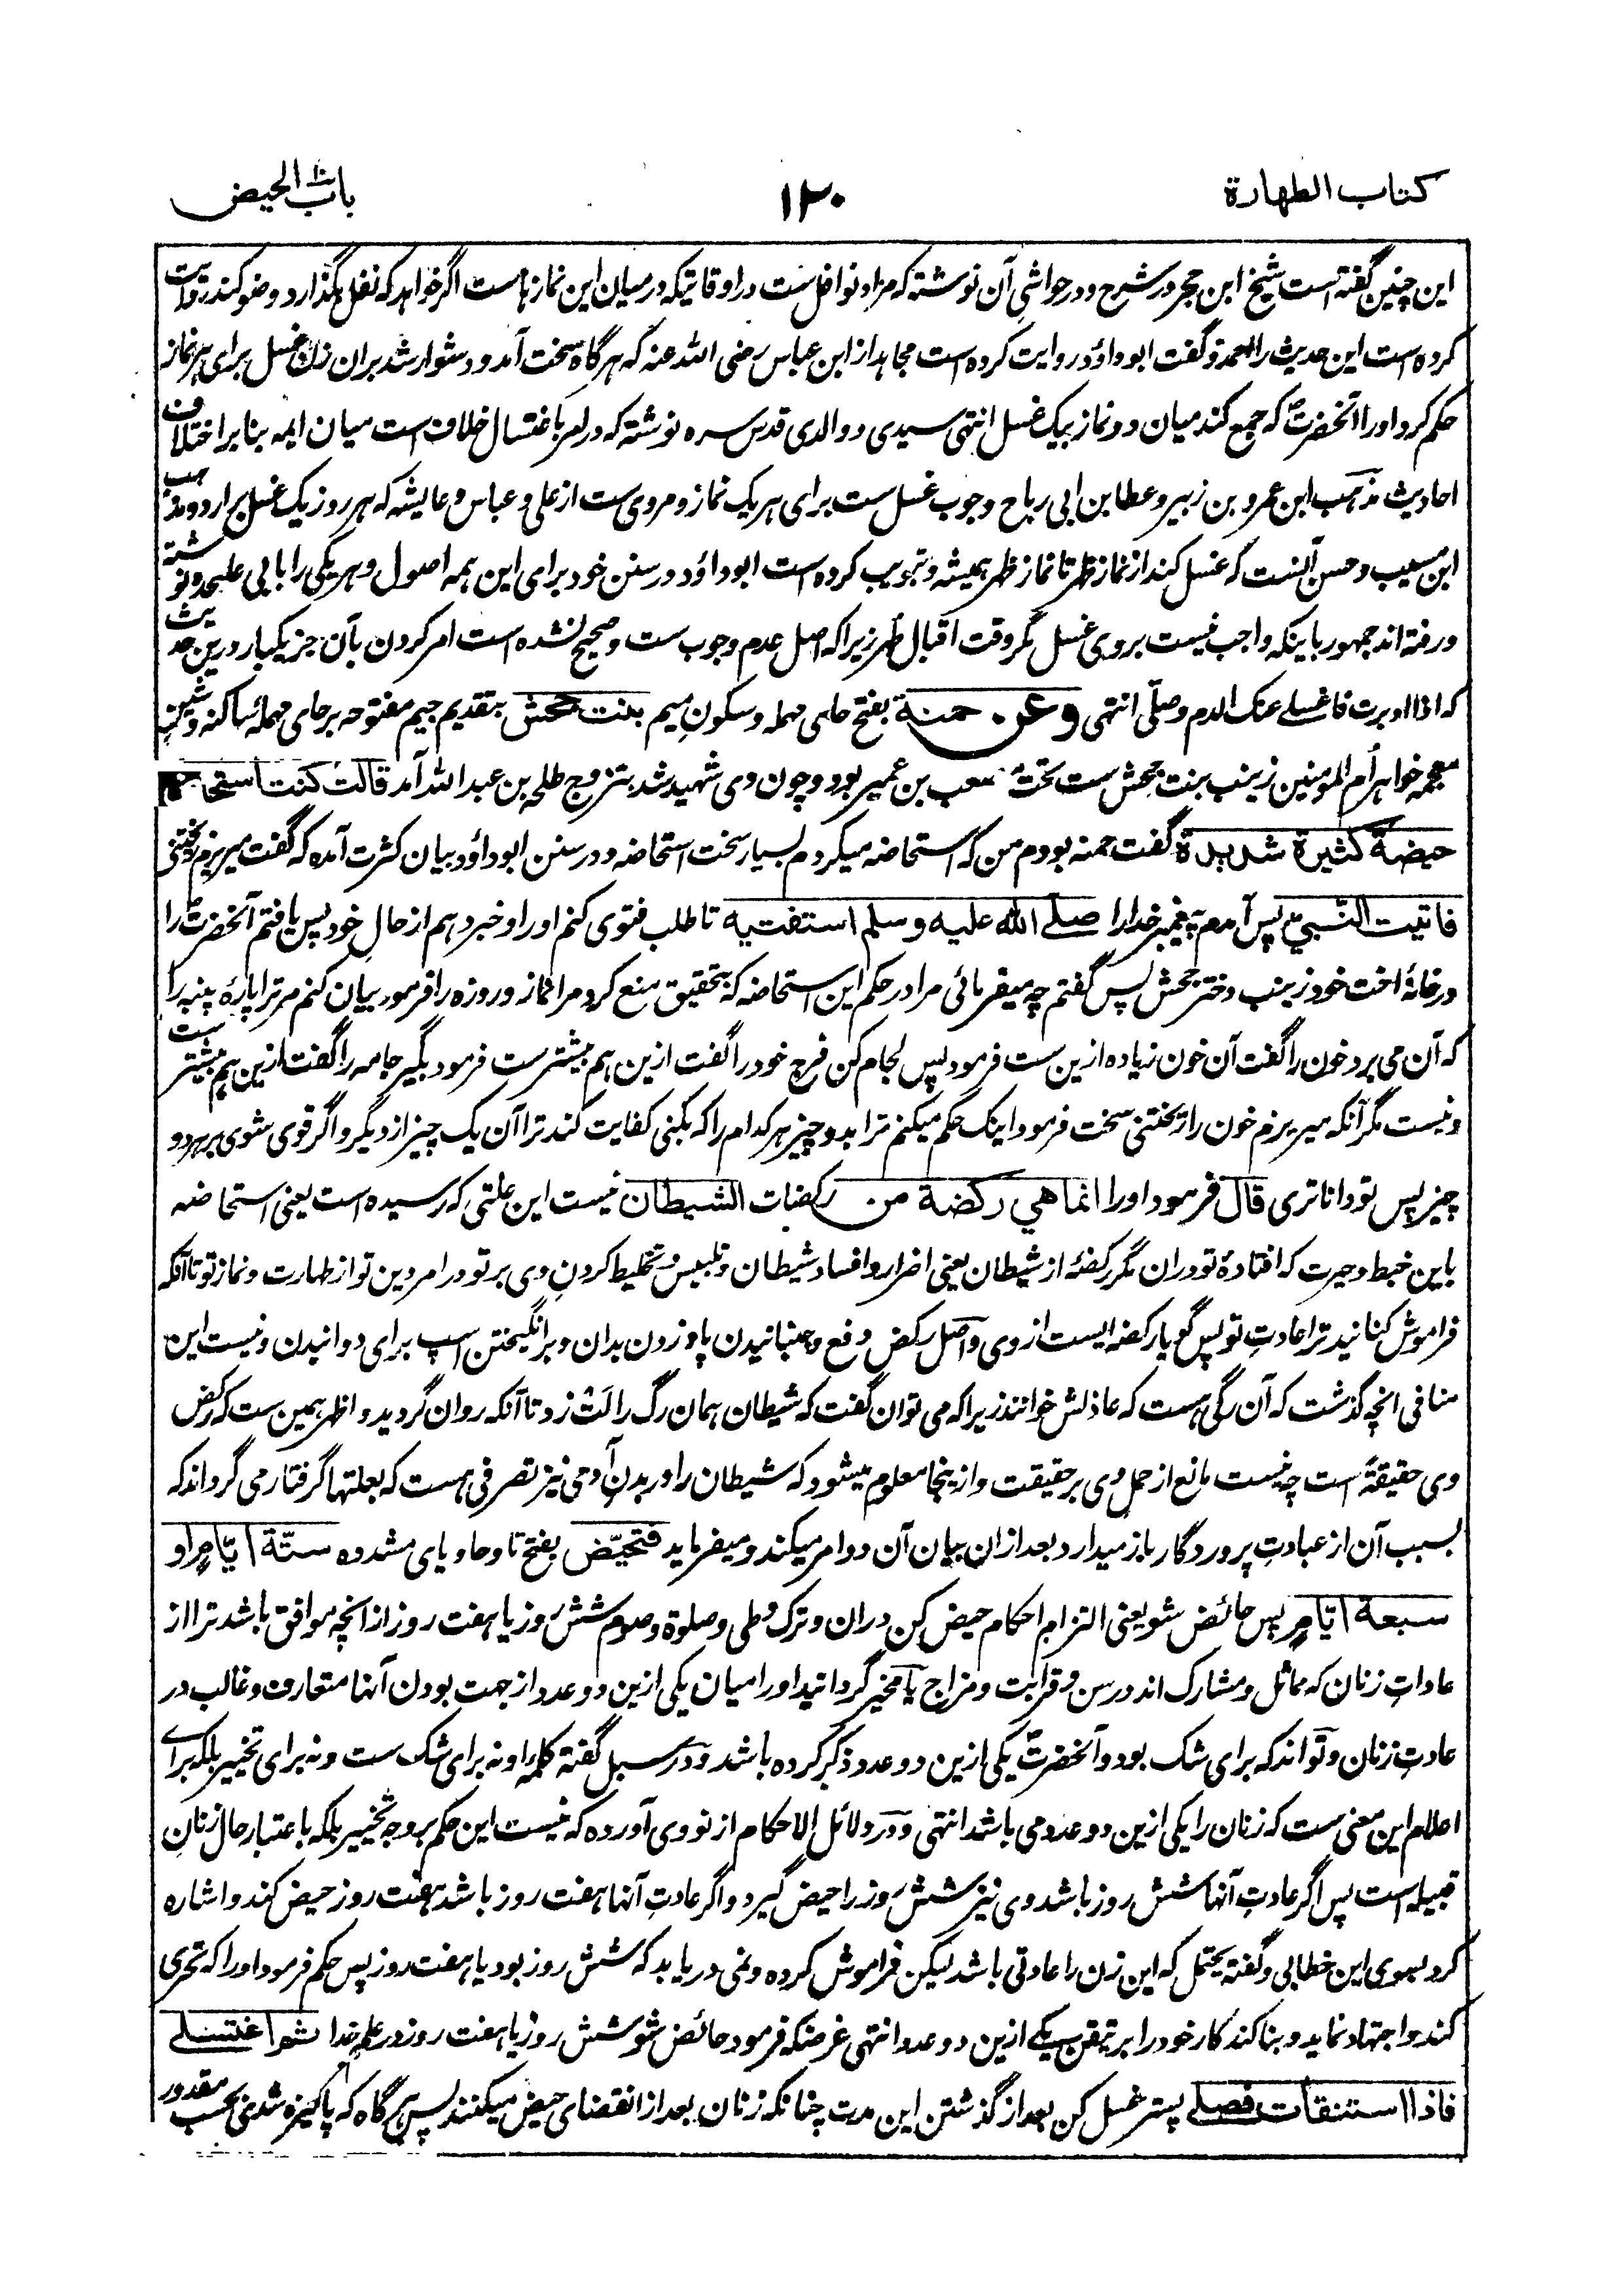 کتاب الطهارة
۱۲۰
باب الحیض
این چنین گفته است شیخ ابن حجر در شرح و در حواشی آن نوشته که مراد نوافل ست در اوقاتیکه در میان این نمازها ست اگر خواهد که نفل بگذارد وضو کند روایت
کرده است این حدیث را احمد و گفت ابوداؤد روایت کرده است مجاهد از ابن عباس رضی الله عنه که هرگاه سخت آمد و دشوار شد بران زن غسل برای هر نماز
حکم کرد او را آنحضرتؐ که جمع کند میان دو نماز بیک غسل انتهی سیدی و والدی قدس سره نوشته که در امر باغتسال خلاف است میان ایمه بنا بر اختلاف
احادیث مذهب ابن عمر و بن زبیر و عطا بن ابی رباح وجوب غسل ست برای هر یک نماز و مروی ست از علی و عباس و عایشه که هر روز یک غسل برارد و مذهب
ابن مسیب و حسن آنست که غسل کند از نماز ظهر تا نماز ظهر همیشه و تبویب کرده است ابوداؤد در سنن خود برای این همه اصول و هر یکی را بابی علیحده نوشته
و رفته اند جمهور باینکه واجب نیست بروی غسل مگر وقت اقبال طهر زیرا که اصل عدم وجوب ست و صحیح نشده است امر کردن بآن جز یکبار درین حدیث
که اذا ادبرت فاغسلے عنک الدم وصلّی انتهی وعن حمنة بفتح حای مهمله و سکون میم بنت جحش بتقدیم جیم مفتوحه بر حای مهملۀ ساکنه و شین
معجمه خواهر ام المؤمنین زینب بنت جحش ست تحت مصعب بن عمیر بود و چون وی شهید شد بتزوج طلحه بن عبد الله آمد قالت کنت استحاض
حیضة کثیرة شدیدة گفت حمنه بودم من که استحاضه میکردم بسیار سخت استحاضه و در سنن ابوداؤد بیان کثرت آمده که گفت میریزم ریختنی
فاتیت النبي پس آمدم پیغمبر خدا را صلے الله علیه وسلم استفتیه تا طلب فتوی کنم او را و خبر دهم از حال خود پس یافتم آنحضرتؐ را
در خانۀ اخت خود زینب دختر جحش پس گفتم چه میفرمائی مرا در حکم این استحاضه که بتحقیق منع کرد مرا نماز و روزه را فرمود بیان کنم مر ترا پارۀ پنبه را
که آن می برد خون را گفت آن خون زیاده ازین ست فرمود پس لجام کن فرج خود را گفت ازین هم بیشتر ست فرمود بگیر جامه را گفت ازین هم بیشتر ست
و نیست مگر آنکه میریزم خون را ریختنی سخت فرمود اینک حکم میکنم ترا بدو چیز هر کدام را که بکنی کفایت کند ترا آن یک چیز از دیگر و اگر قوی شوی بر هر دو
چیز پس تو داناتری قال فرمود او را انما هي رکضة من رکضات الشیطان نیست این علتی که رسیده است یعنی استحاضه
باین خبط و حیرت که افتادۀ تو دران مگر رکضۀ از شیطان یعنی اضرار و افساد شیطان و تلبیس و تخلیط کردن وی بر تو در امر دین تو از طهارت و نماز تو تا آنکه
فراموش کنانید ترا عادت تو پس گویا رکضه ایست از وی و اصل رکض دفع و جنبانیدن پا و زدن بدان و برانگیختن اسپ برای دوانیدن و نیست این
منافی انچه گذشت که آن رگی هست که عاذلش خوانند زیرا که می توان گفت که شیطان همان رگ را لت زد تا آنکه روان گردید و اظهر همین ست که رکض
وی حقیقۀ است چه نیست مانع از حمل وی بر حقیقت و ازینجا معلوم میشود که شیطان را در بدن آدمی نیز تصرفی هست که بعلتها گرفتار می گرداند که
بسبب آن از عبادت پروردگار باز میدارد بعد ازان بیان آن دو امر میکند و میفرماید فتحیّض بفتح تا و حا و یای مشدده ستّة ایّام او
سبعة ایّام پس حائض شو یعنی التزام احکام حیض کن دران و ترک وطی و صلوة و صوم شش روز یا هفت روز از انچه موافق باشد ترا از
عادات زنان که مماثل و مشارک اند در سن و قرابت و مزاج یا مخیر گردانید او را میان یکی ازین دو عدد از جهت بودن آنها متعارف و غالب در
عادت زنان و تواند که برای شک بود و آنحضرتؐ یکی ازین دو عدد ذکر کرده باشد و در سبل گفته کلمه او نه برای شک ست و نه برای تخییر بلکه برای
اعلام این معنی ست که زنان را یکی ازین دو عدد می باشد انتهی و در دلائل الاحکام از نووی آورده که نیست این حکم بر وجه تخییر بلکه باعتبار حال زنان
قبیله است پس اگر عادت آنها شش روز باشد وی نیز شش روز را حیض گیرد و اگر عادت آنها هفت روز باشد هفت روز حیض کند و اشاره
کرد بسوی این خطابی و گفته یحتمل که این زن را عادتی باشد لیکن فراموش کرده و نمی دریابد که شش روز بود یا هفت روز پس حکم فرمود او را که تحری
کند و اجتهاد نماید و بنا کند کار خود را بر تیقن بیکے ازین دو عدد انتهی غرضکه فرمود حائض شو شش روز یا هفت روز در علم خدا ثم اغتسلے
فاذا استنقات فصلے پستر غسل کن بعد از گذشتن این مدت چنانکه زنان بعد از انقضای حیض میکنند پس هرگاه که پاکیزه شدی بحسب مقدور